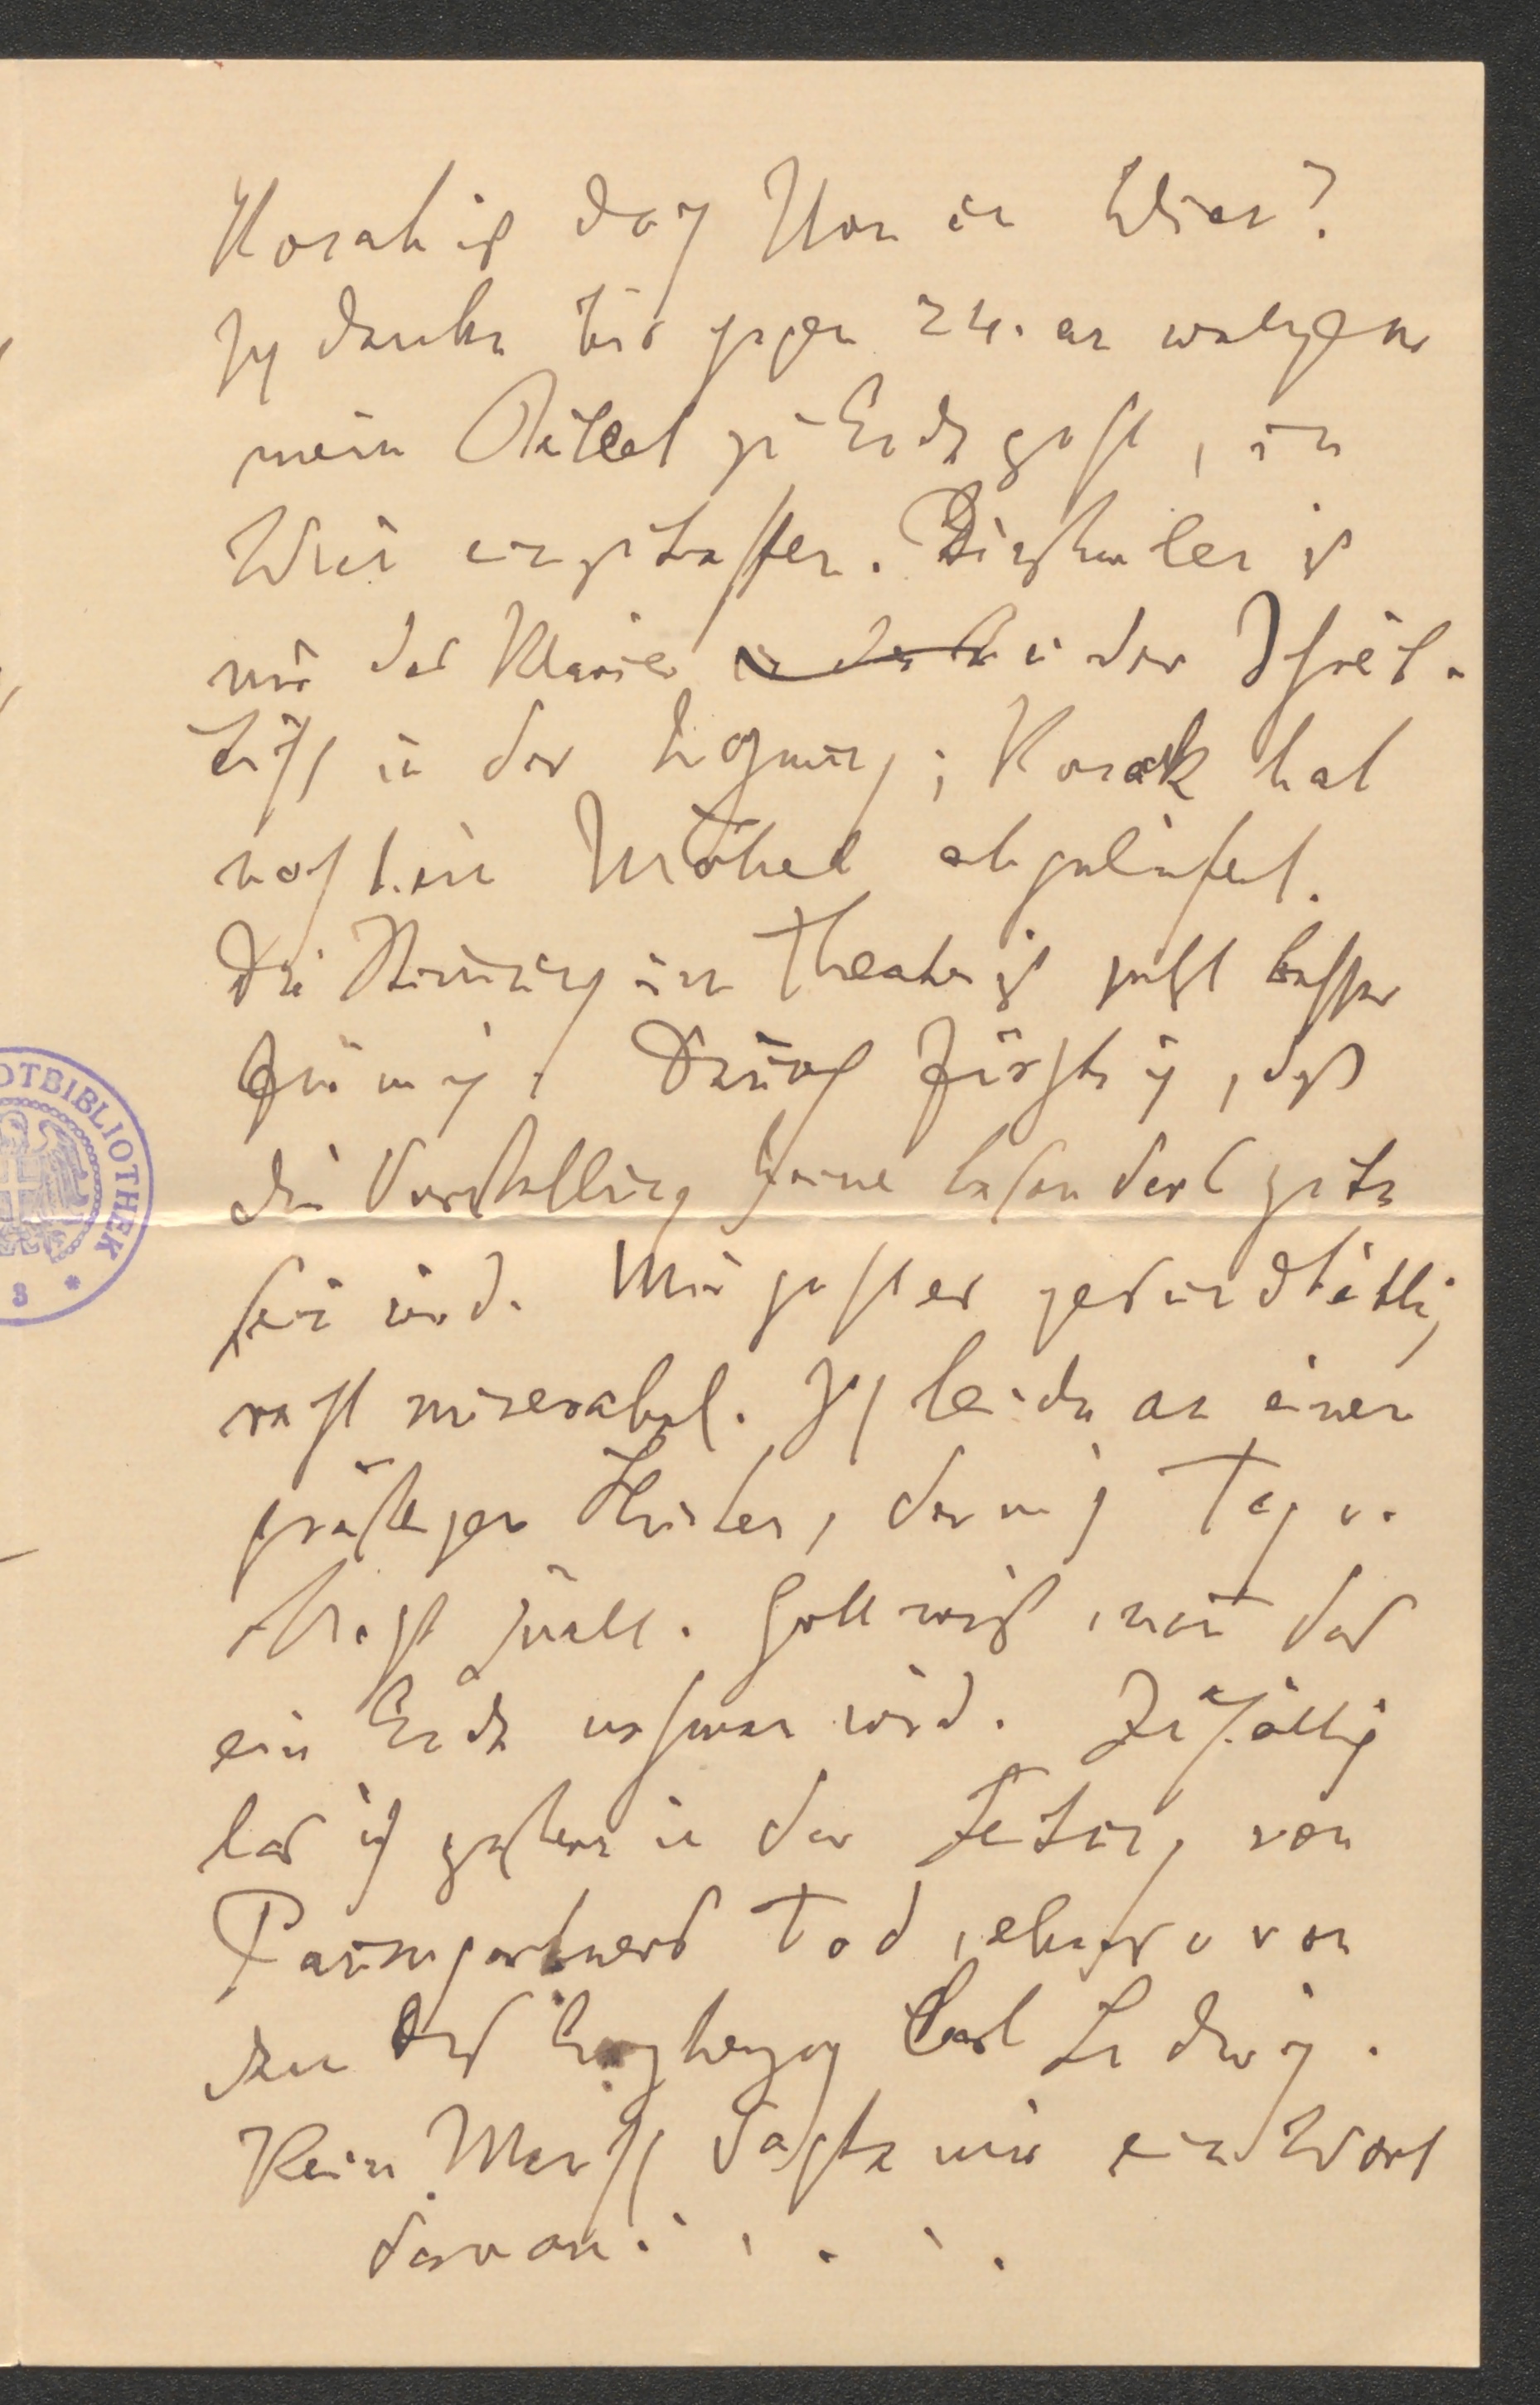 Horak ist doch schon in Wien?
Ich denke bis gegen 24. an welchem
mein Billet zu Ende geht, in
Wien einzutreffen. Bis jetzt
nur das Klavier in der Schreib-
tisch in der Wohnung; Horak hat
noch kein Möbel abgeliefert.
Die Stimmung im Theater ist jetzt besser
für mich. Dennoch fürchte ich, daß
die Vorstellung keine besonders gute
sein wird. Mir geht es gesundheitlich
recht miserabel. Ich leide an einem
gräßlichen Husten, der mich Tag u.
Nacht quält. Gott weiß, wann das
ein Ende nehmen wird. Zufällig
las ich gestern in der Zeitung von
Paumgartners Tod, ebenso von
dem des Erzherzog Carl Ludwig.
Kein Mensch sagte mir ein Wort
davon. . . . .
OTBIBLIOTHEK